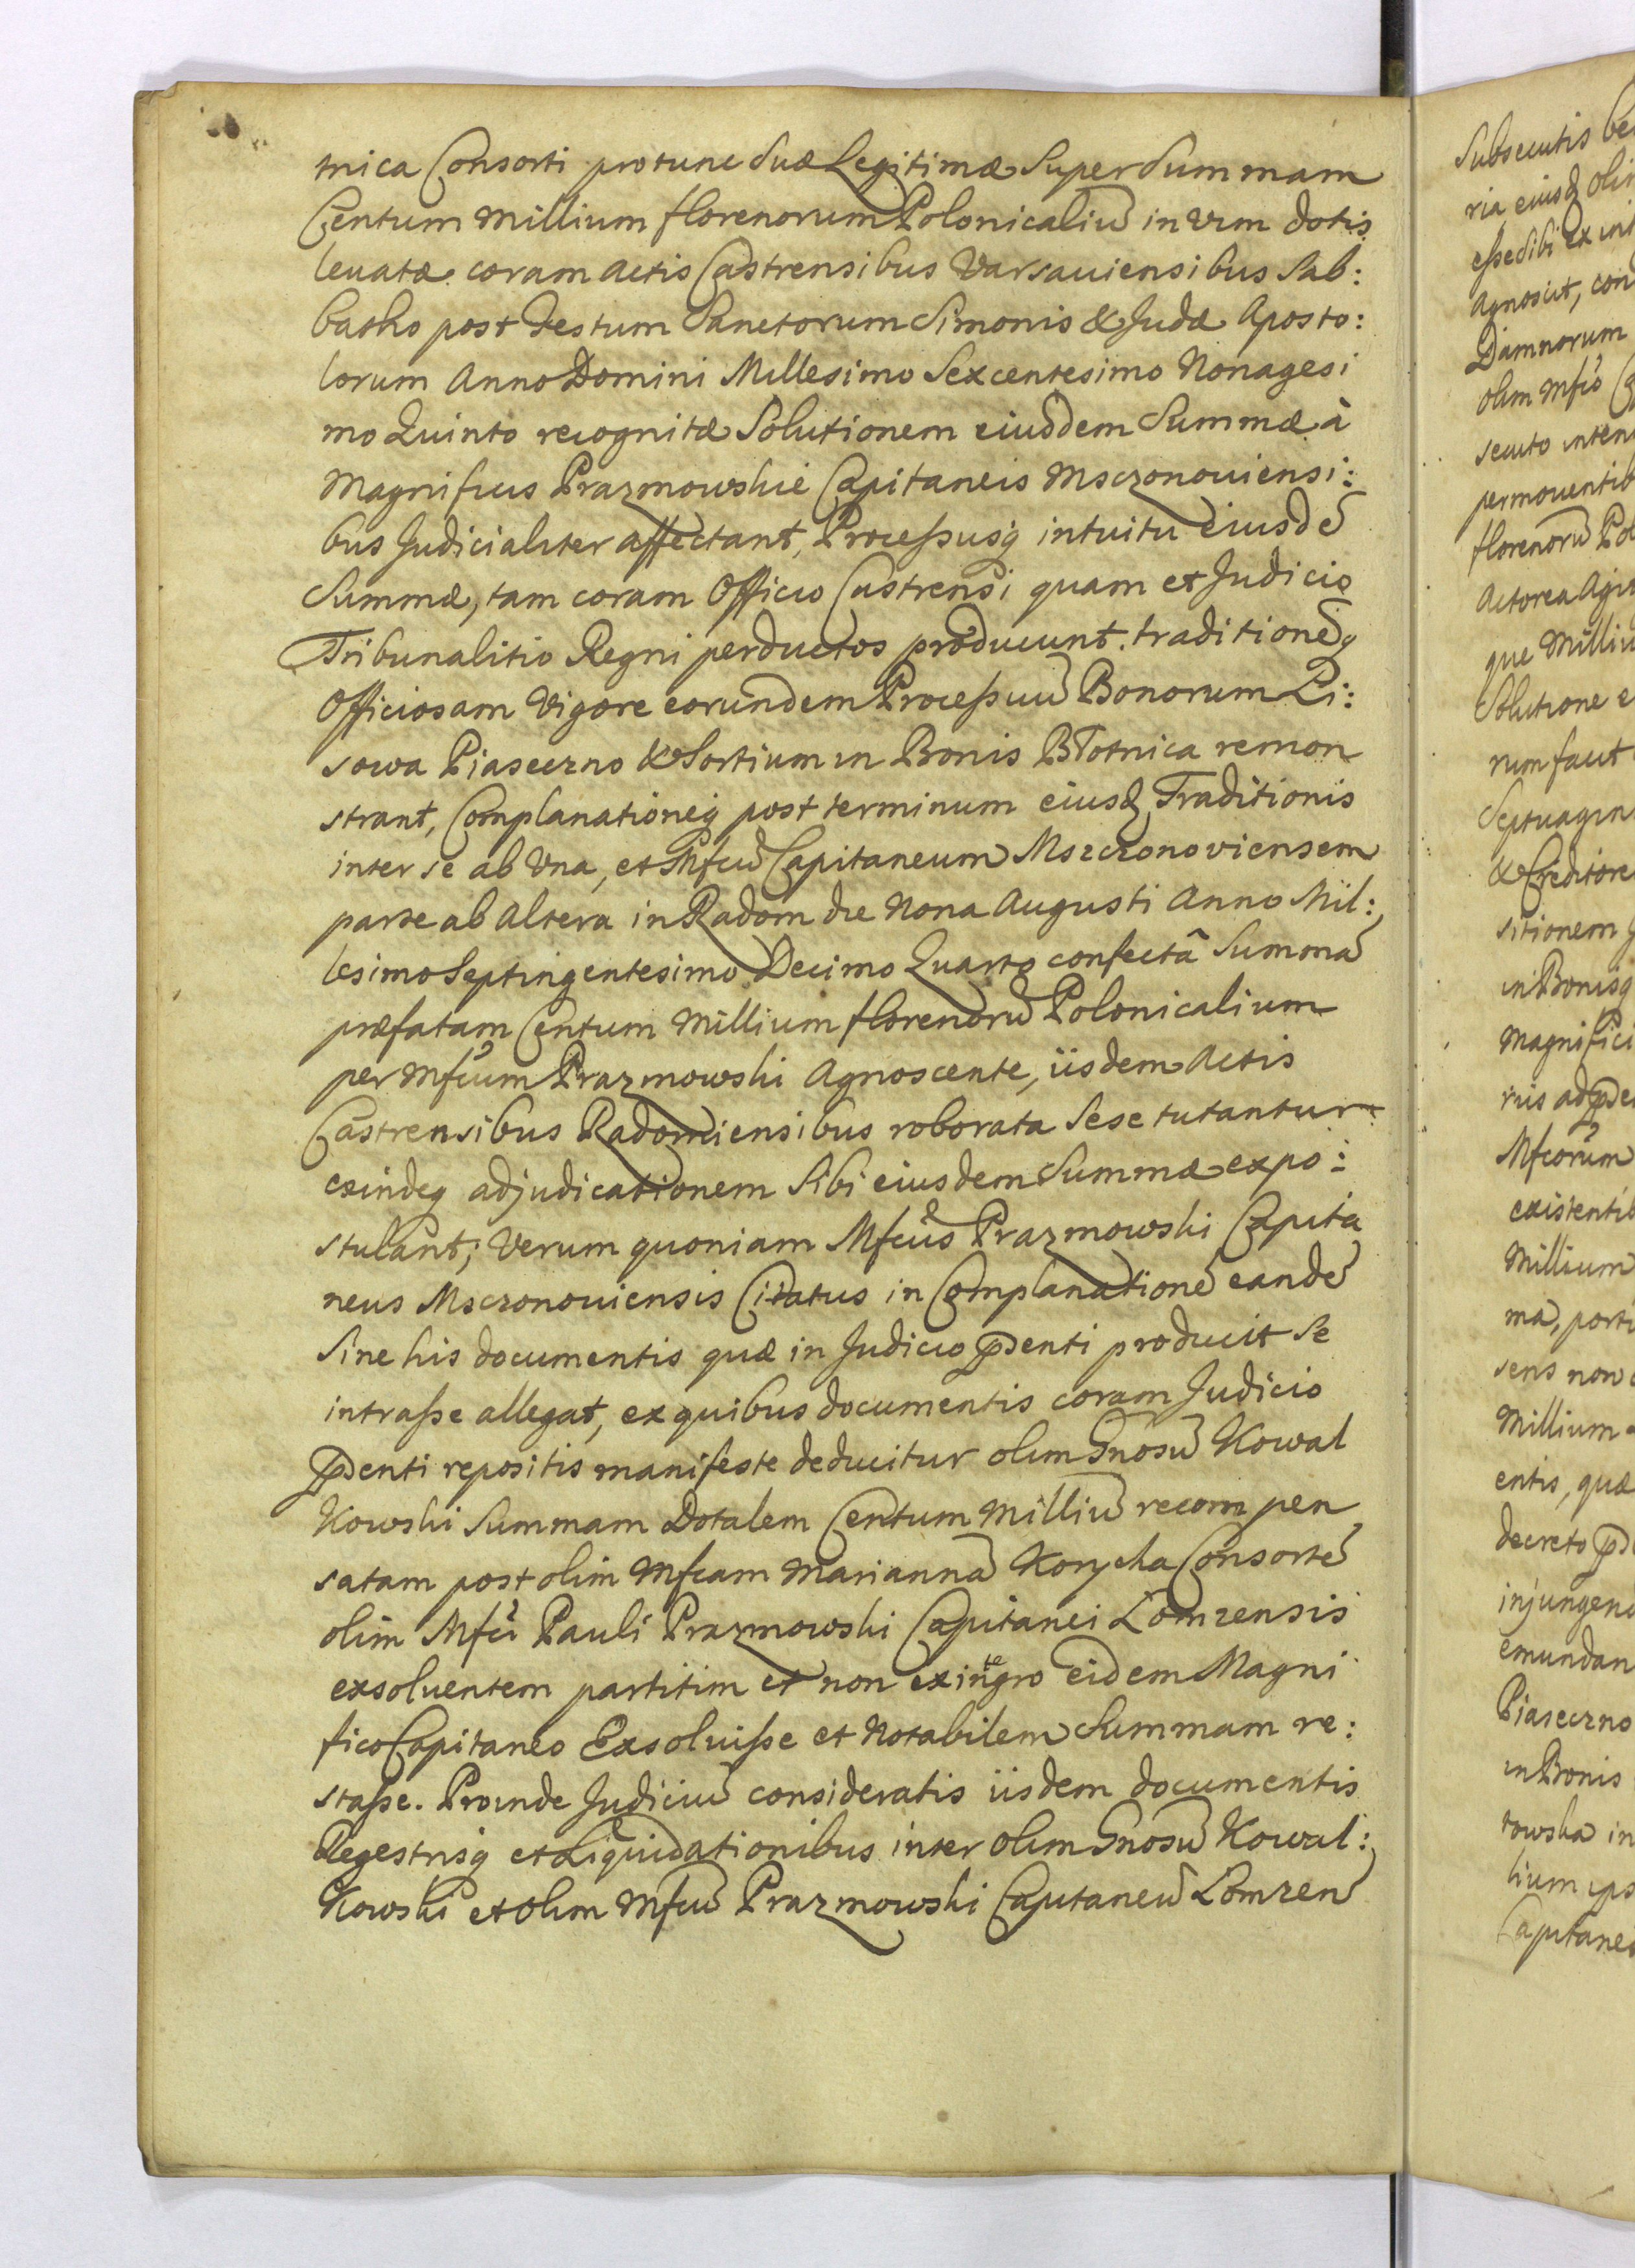 trica Consorti protunc suæ Legitimæ Super Summam
Centum Millium florenorum Polonicaliũ in Vim dotis
levatæ coram Actis Castrensibus Varsaviensibus Sab:
batho post Festum Sanctorum Simonis & Judæ Aposto:
lorum Anno Domini Millesimo Sexcentesimo Nonagesi
mo Quinto recognitæ Solutionem eiusdem Summæ à
Magnificis Prazmowskie Capitaneis Msczonoviensi:
bus Judicialiter affectant, Processusq intuitu eiusdẽ
Summæ, tam coram Officio Castrensi quam et Judicio
Tribunalitio Regni perductos producunt. traditionẽq
Officiosam Vigore eorundem Processuũ Bonorum Li:
sowa Piaseczno & Sortium in Bonis Błotnica remon
strant, Complanationẽq post terminum eiusd Traditionis
inter se ab Vna, et Mfcũ Capitaneum Mszczonoviensem
parte ab Altera in Radom die Nona Augusti Anno Mil:
lesimo Septingentesimo Decimo Quarto confectâ Summã
præfatam Centum Millium florenorũ Polonicalium
per Mfcum Prazmowski Agnoscente, iisdem Actis
Castrensibus Radomiensibus roborata sese tutantur
exindeq adjudicationem Sibi eiusdem Summæ expo:
stulant; Verum quoniam Mfcus Prazmowski Capita
neus Msczonoviensis Citatus in Complanationẽ eandẽ
Sine his documentis quæ in Judicio pñdenti producit se
intrasse allegat, ex quibus documentis coram Judicio
pñdenti repositis manifeste deducitur olim Gnosũ Kowal
Kowski Summam Dotalem Centum Milliũ recompen
satam post olim Mfcam Mariannã Konycka Consortẽ
olim Mfci Pauli Prazmowski Capitanei Lomzensis
exsolventem partitim et non ex integro eidem Magni
fico Capitaneo Exsolvisse et Notabilem Summam re:
stasse. Proinde Judiciũ consideratis iisdem documentis
Regestrisq et Liquidationibus inter olim Gnosũ Kowal:
Kowski et olim Mfcũ Prazmowski Capitaneũ Lomzen
Subsecutis
ria eiusd
esse sibi ex
Agnoscit,
Damnorum
olim Mfco
secuto
permoventib
florenorũ Pol
Actorea
que Milliu
Solutione
rum facit
Septuagin
& Creditore
sitionem
in Bonisq
Magnifici
riis
Mfcorum
existentib
Millium
ma,
sens non
Millium
entis, quæ
decreto
injungend
emundan
Piaseczno
in Bonis
towska in
lium ips
Capitaneo